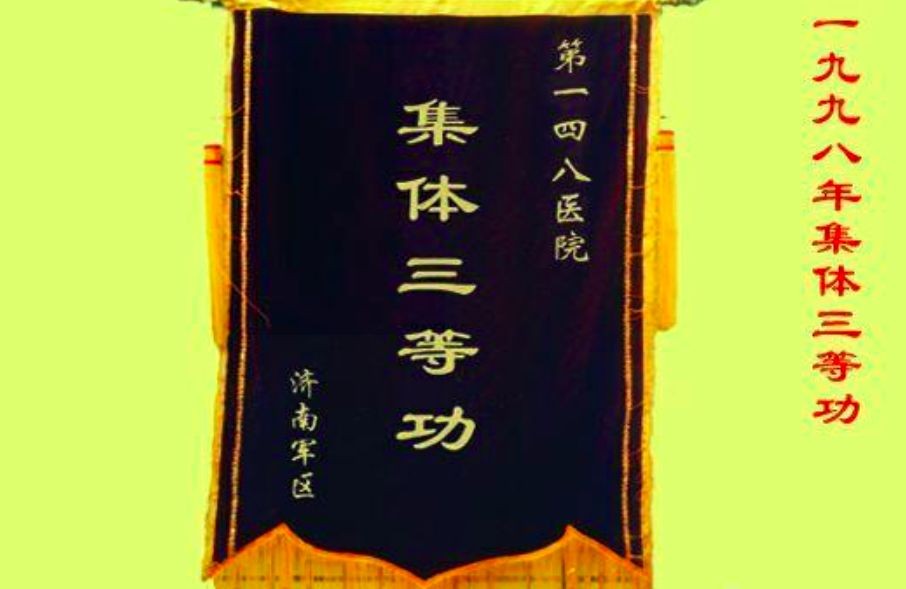 一九九八年集体三等功
第一四八医院
集体三等功
济南军区